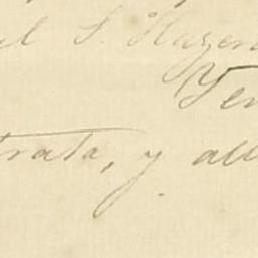 el S. Hazen
Ten
trata, y all